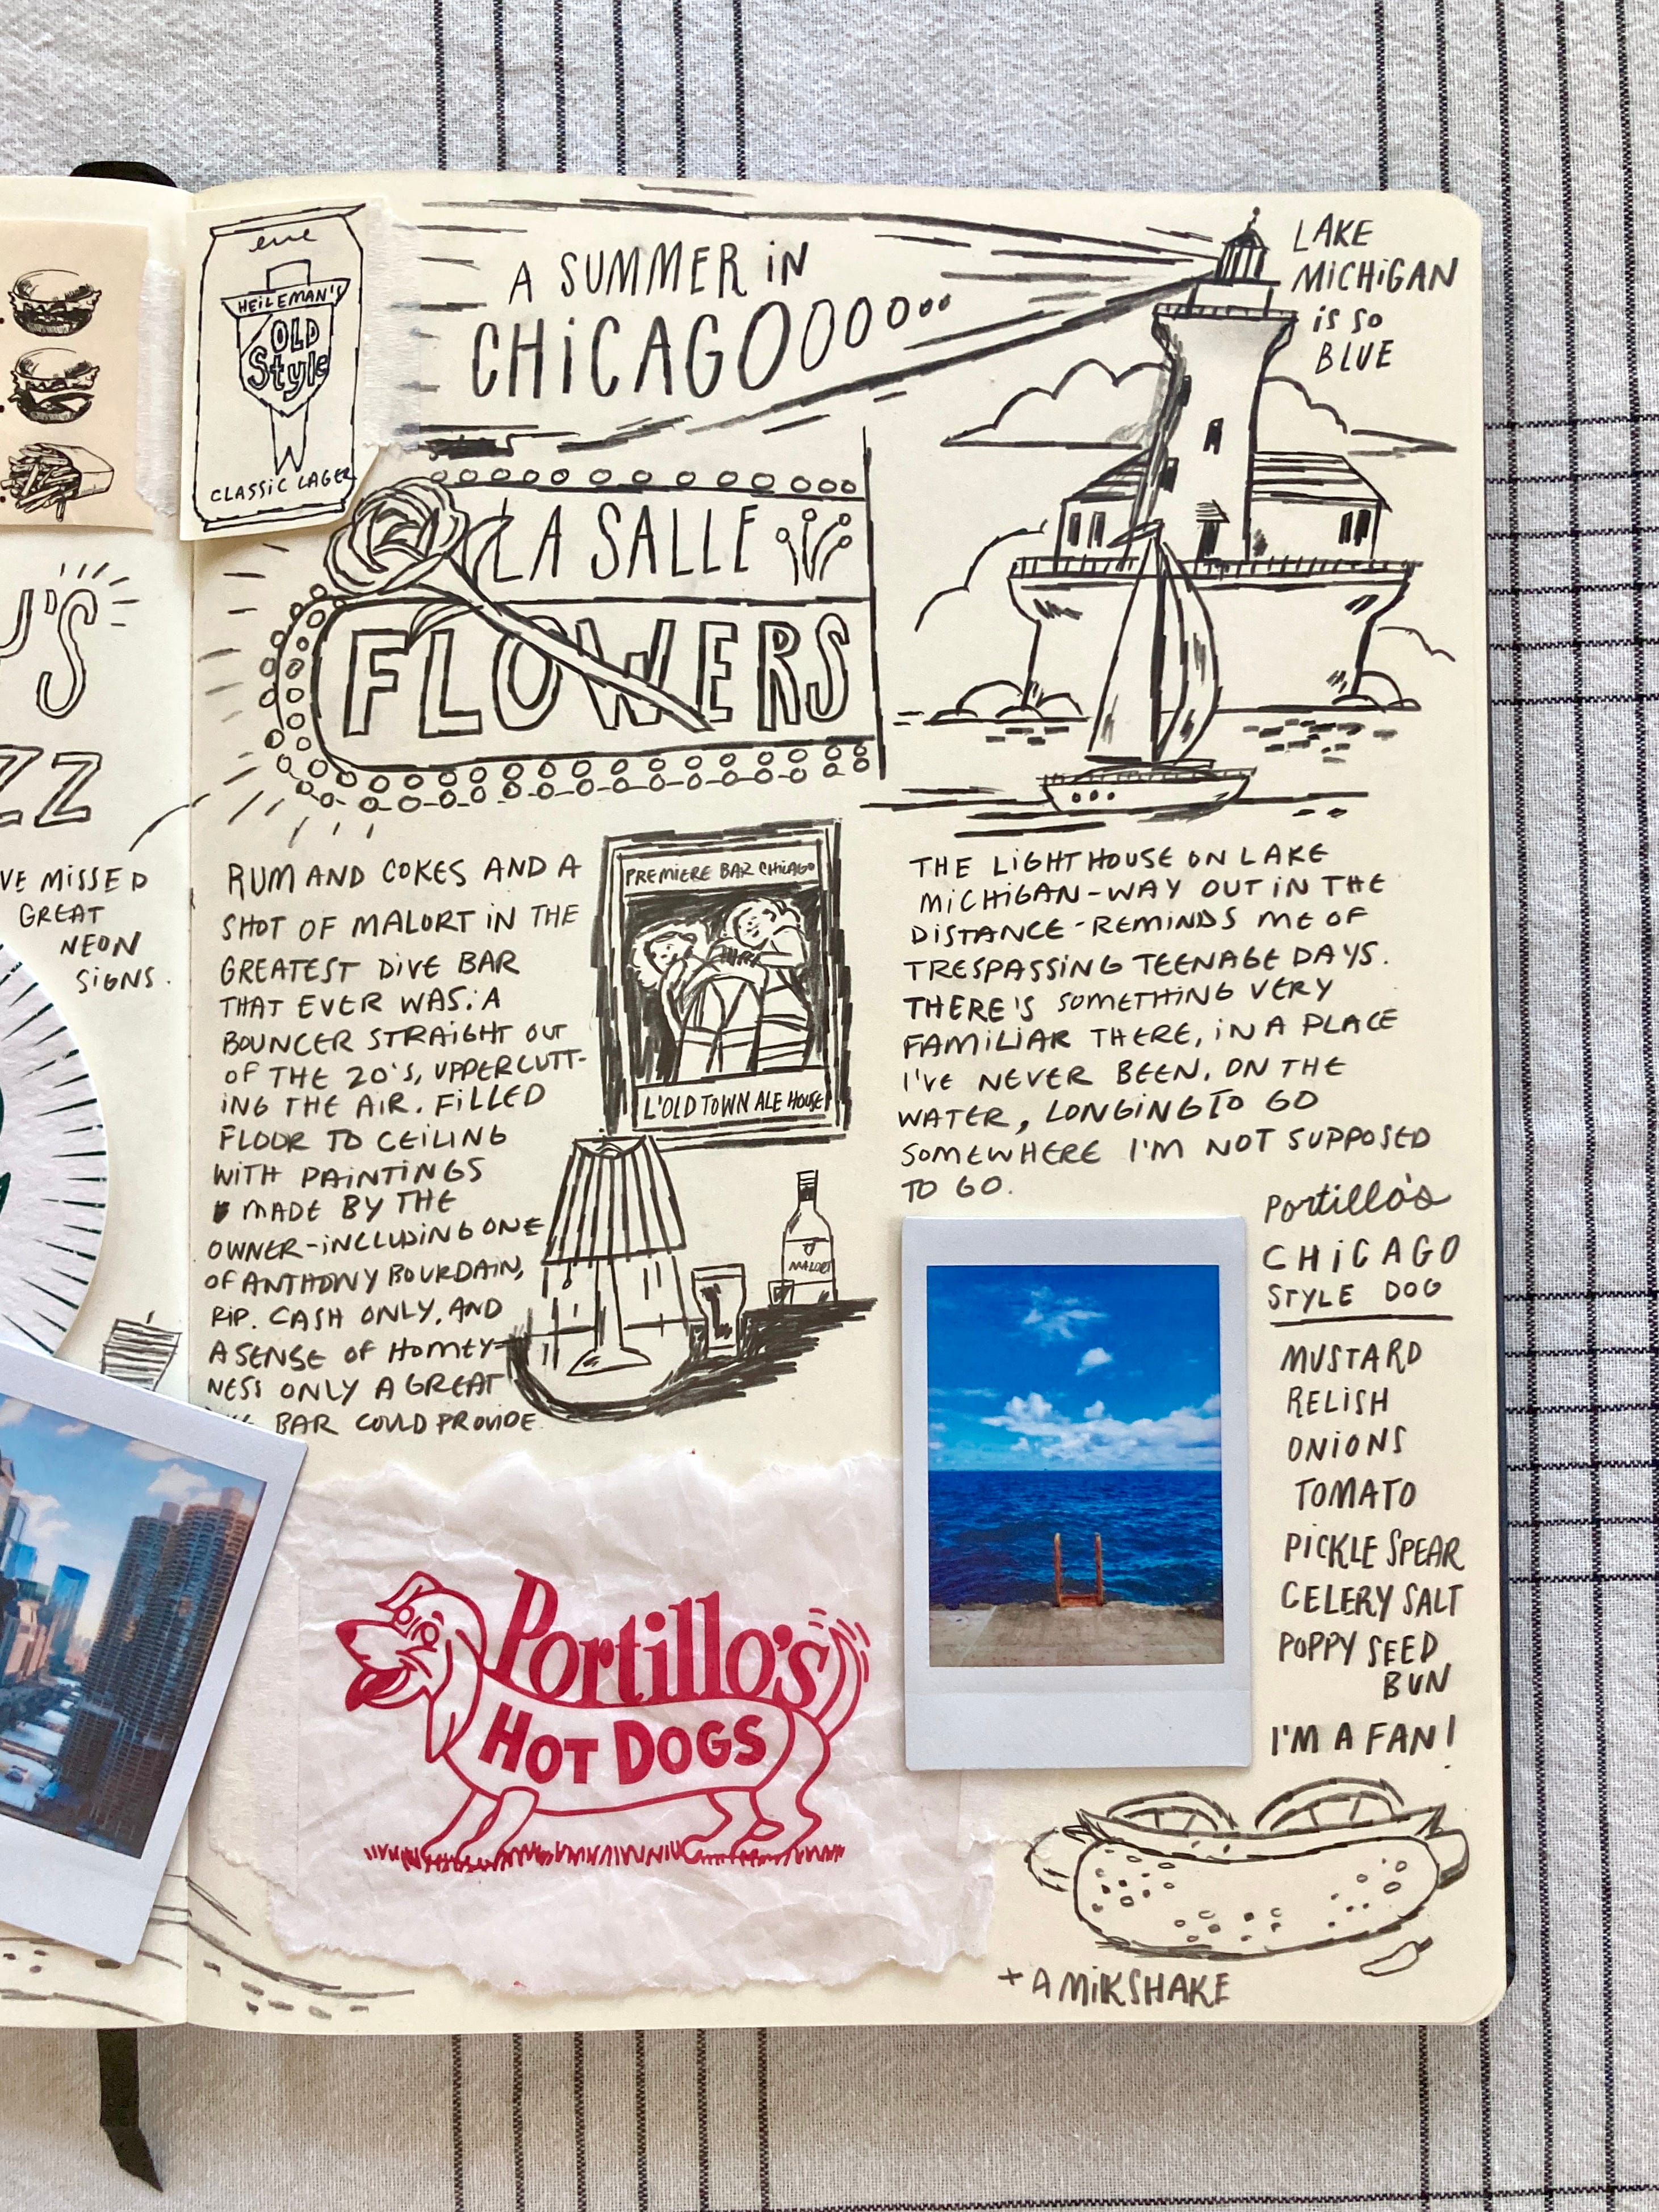 eine
HEILEMAN'S
OLD
Style
CLASSIC LAGER
A SUMMER IN
CHICAGOOOOOOO
LAKE
MICHIGAN
IS SO
BLUE
LA SALLE
FLOWERS
'S
ZZ
VE MISSED
GREAT
NEON
SIGNS.
RUM AND COKES AND A
SHOT OF MALORT IN THE
GREATEST DIVE BAR
THAT EVER WAS: A
BOUNCER STRAIGHT OUT
OF THE 20'S, UPPERCUTT-
ING THE AIR. FILLED
FLOOR TO CEILING
WITH PAINTINGS
MADE BY THE
OWNER-INCLUDING ONE
OF ANTHONY BOURDAIN,
RIP. CASH ONLY. AND
A SENSE OF HOMEY-
NESS ONLY A GREAT
BAR COULD PROVIDE.
PREMIERE BAR CHICAGO
L'OLD TOWN ALE HOUSE
MALORT
THE LIGHTHOUSE ON LAKE
MICHIGAN-WAY OUT IN THE
DISTANCE-REMINDS ME OF
TRESPASSING TEENAGE DAYS.
THERE'S SOMETHING VERY
FAMILIAR THERE, IN A PLACE
I'VE NEVER BEEN. ON THE
WATER, LONGING TO GO
SOMEWHERE I'M NOT SUPPOSED
TO GO.
Portillo's
CHICAGO
STYLE DOG
MUSTARD
RELISH
ONIONS
TOMATO
PICKLE SPEAR
CELERY SALT
POPPY SEED
BUN
I'M A FAN!
Portillo's
HOT DOGS
+ A MIKSHAKE